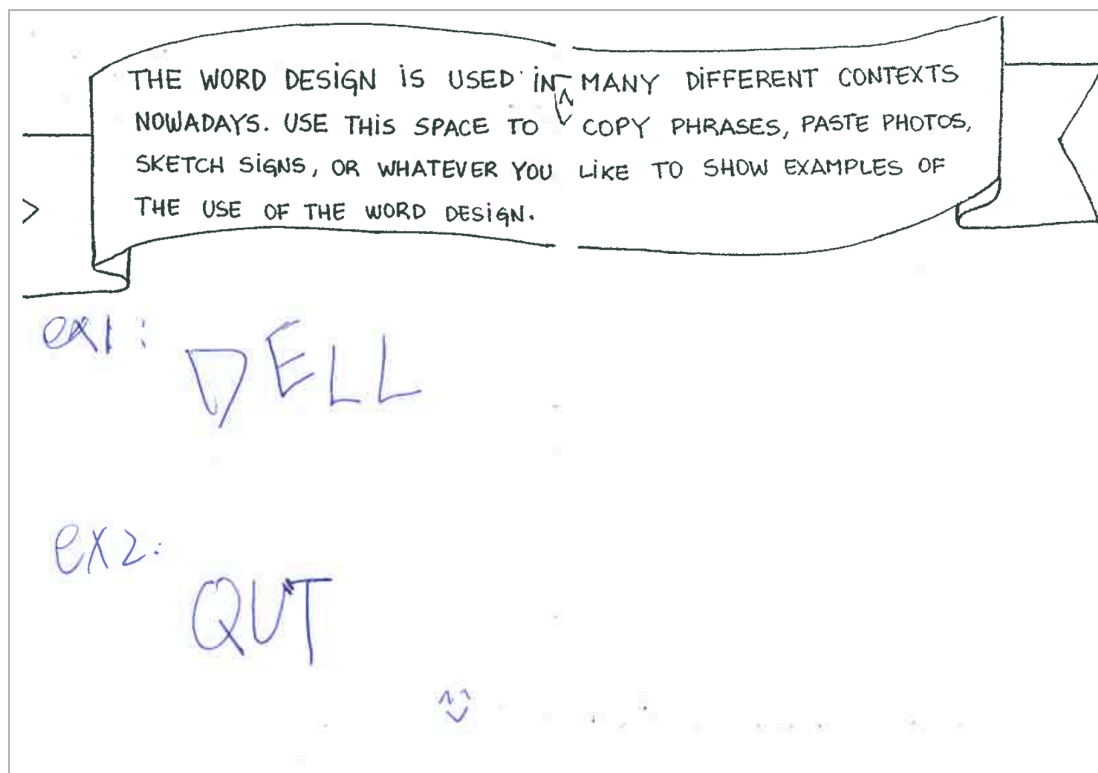 THE WORD DESIGN IS USED IN MANY DIFFERENT CONTEXTS
NOWADAYS. USE THIS SPACE TO COPY PHRASES, PASTE PHOTOS,
SKETCH SIGNS, OR WHATEVER YOU LIKE TO SHOW EXAMPLES OF
THE USE OF THE WORD DESIGN.
ex1:
DELL
ex2:
QUT